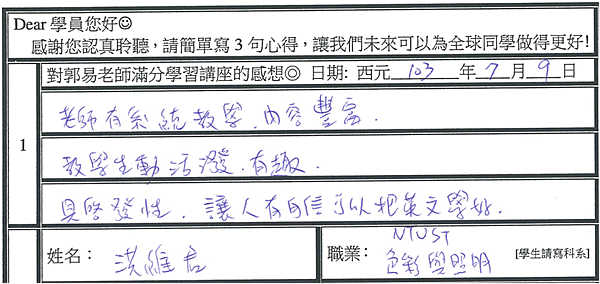 Dear 學員您好☺
感謝您認真聆聽，請簡單寫 3 句心得，讓我們未來可以為全球同學做得更好!
1
對郭易老師滿分學習講座的感想◎ 日期: 西元 103 年 7 月 9 日
老師有系統教學、內容豐富.
教學生動活潑、有趣.
具啓發性、讓人有自信可以把英文學好.
姓名： 洪維君 職業： NTUST
色彩與照明 [學生請寫科系]